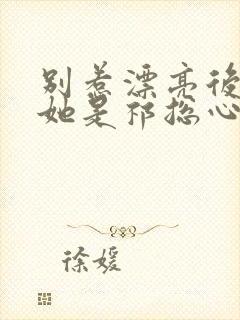 别惹漂亮後
她是祁總心
徐媛